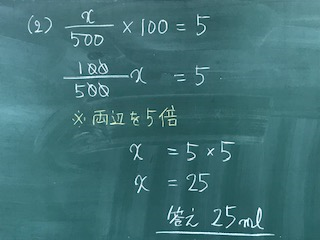 (2) x/500 × 100 = 5
100/500 x = 5
※両辺を5倍
x = 5×5
x = 25
答え 25ml